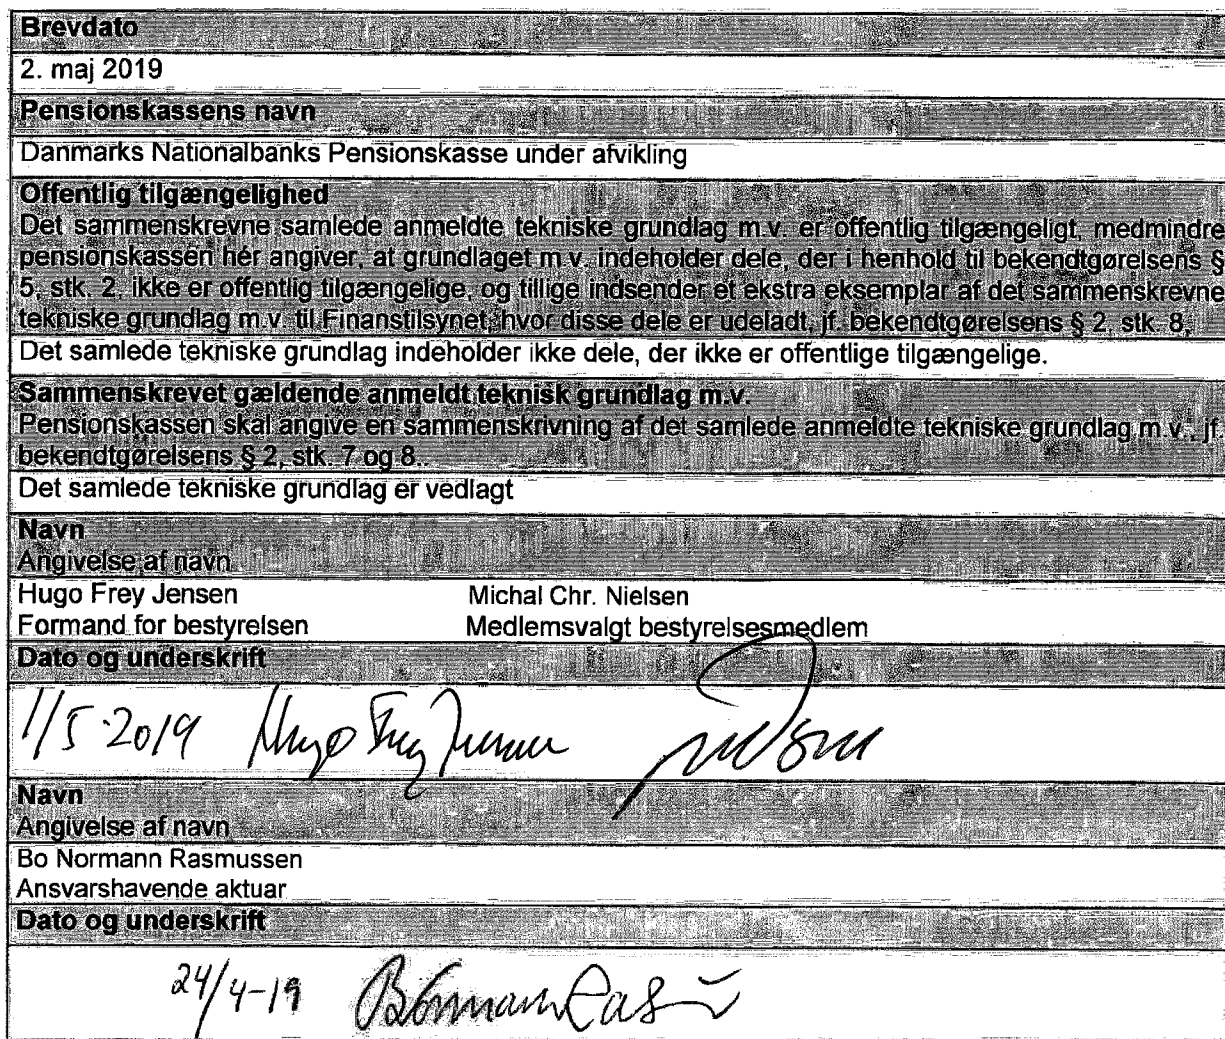 Brevdato
2. maj 2019
Pensionskassens navn
Danmarks Nationalbanks Pensionskasse under afvikling
Offentlig tilgængelighed
Det sammenskrevne samlede anmeldte tekniske grundlag m.v. er offentlig tilgængeligt, medmindre
pensionskassen hér angiver, at grundlaget m.v. indeholder dele, der i henhold til bekendtgørelsens §
5, stk. 2, ikke er offentlig tilgængelige, og tillige indsender et ekstra eksemplar af det sammenskrevne
tekniske grundlag m.v. til Finanstilsynet, hvor disse dele er udeladt, jf. bekendtgørelsens § 2, stk. 8.
Det samlede tekniske grundlag indeholder ikke dele, der ikke er offentlige tilgængelige.
Sammenskrevet gældende anmeldt teknisk grundlag m.v.
Pensionskassen skal angive en sammenskrivning af det samlede anmeldte tekniske grundlag m.v., jf.
bekendtgørelsens § 2, stk. 7 og 8.
Det samlede tekniske grundlag er vedlagt
Navn
Angivelse af navn
Hugo Frey Jensen Michal Chr. Nielsen
Formand for bestyrelsen Medlemsvalgt bestyrelsesmedlem
Dato og underskrift
1/5-2019 Hugo Frey Jensen
Navn
Angivelse af navn
Bo Normann Rasmussen
Ansvarshavende aktuar
Dato og underskrift
24/4-19